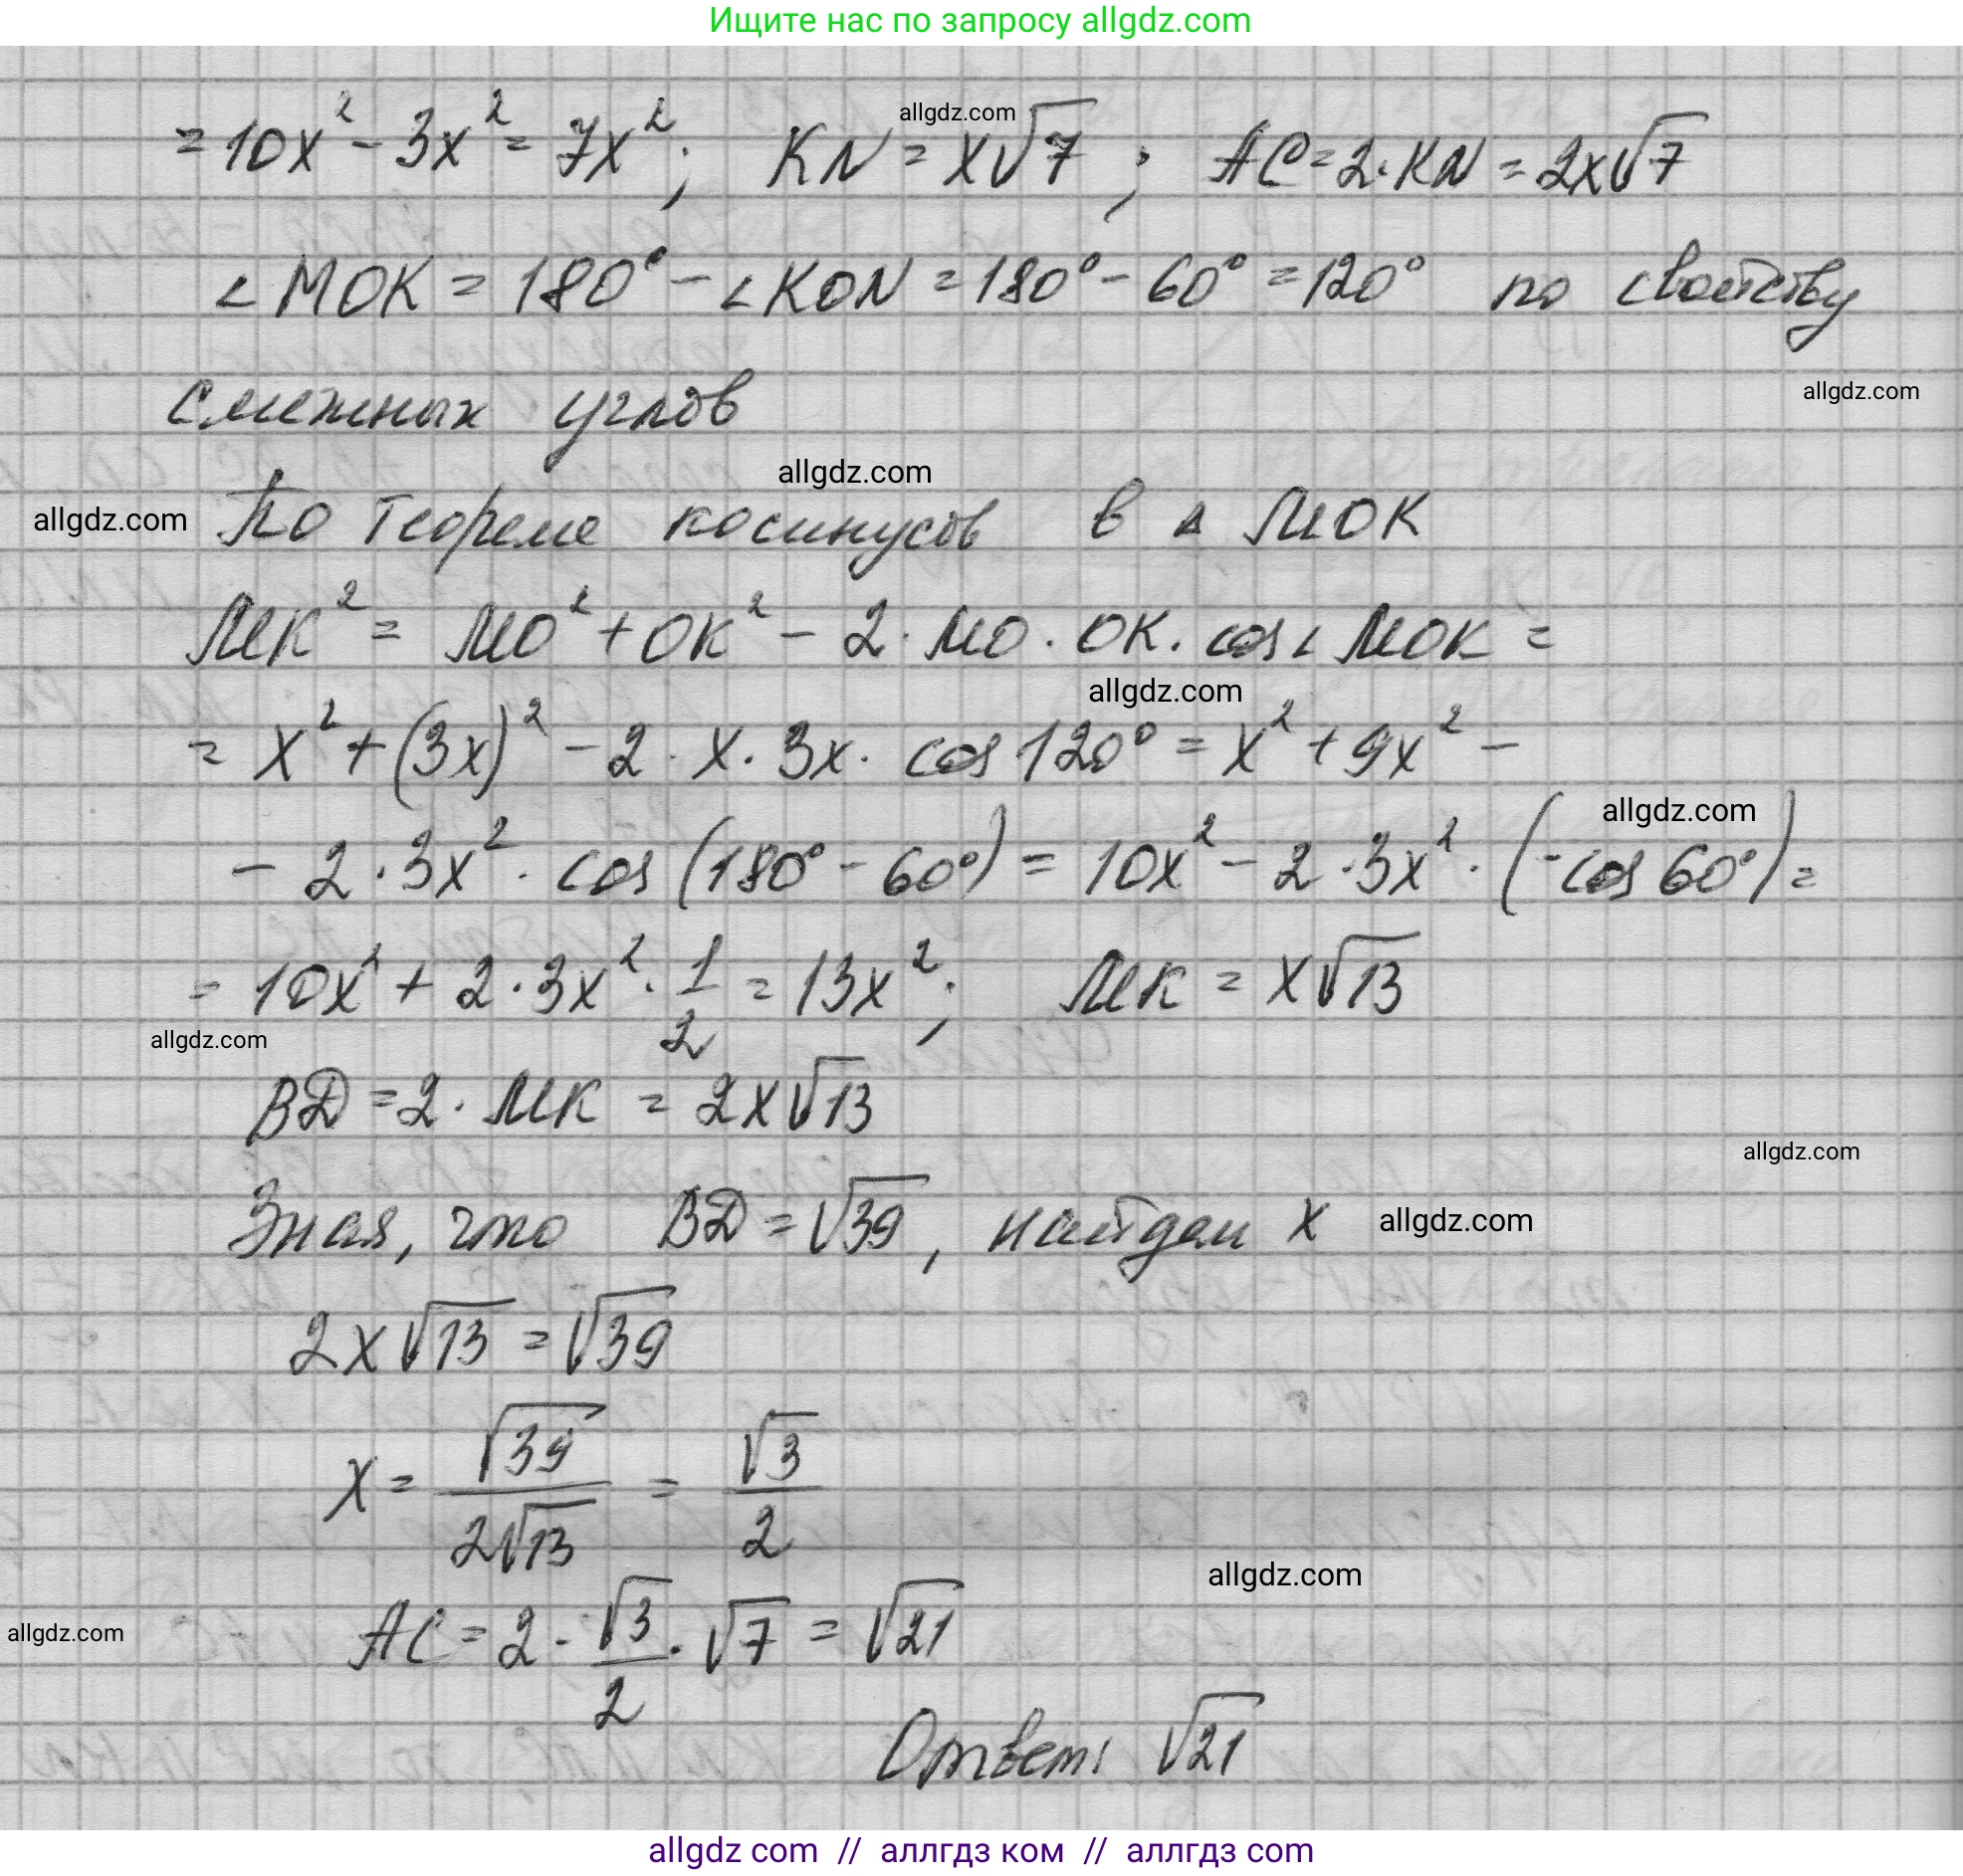 Ищите нас по запросу allgdz.com
= 10x² - 3x² = 7x²; KN = x√7; AC = 2·KN = 2x√7
allgdz.com
∠MOK = 180° - ∠KON = 180° - 60° = 120° по свойству
allgdz.com
смежных углов
allgdz.com
allgdz.com
По теореме косинусов в △ MOK
MK² = MO² + OK² - 2·MO·OK·cos∠MOK =
allgdz.com
= x² + (3x)² - 2·x·3x·cos 120° = x² + 9x² -
allgdz.com
- 2·3x²·cos(180° - 60°) = 10x² - 2·3x²·(-cos 60°) =
= 10x² + 2·3x²·1/2 = 13x²; MK = x√13
allgdz.com
BD = 2·MK = 2x√13
allgdz.com
Зная, что BD = √39, найдем x
allgdz.com
2x√13 = √39
x = √39/2√13 = √3/2
allgdz.com
AC = 2·√3/2·√7 = √21
allgdz.com
Ответ: √21
allgdz com // аллгдз ком // аллгдз com